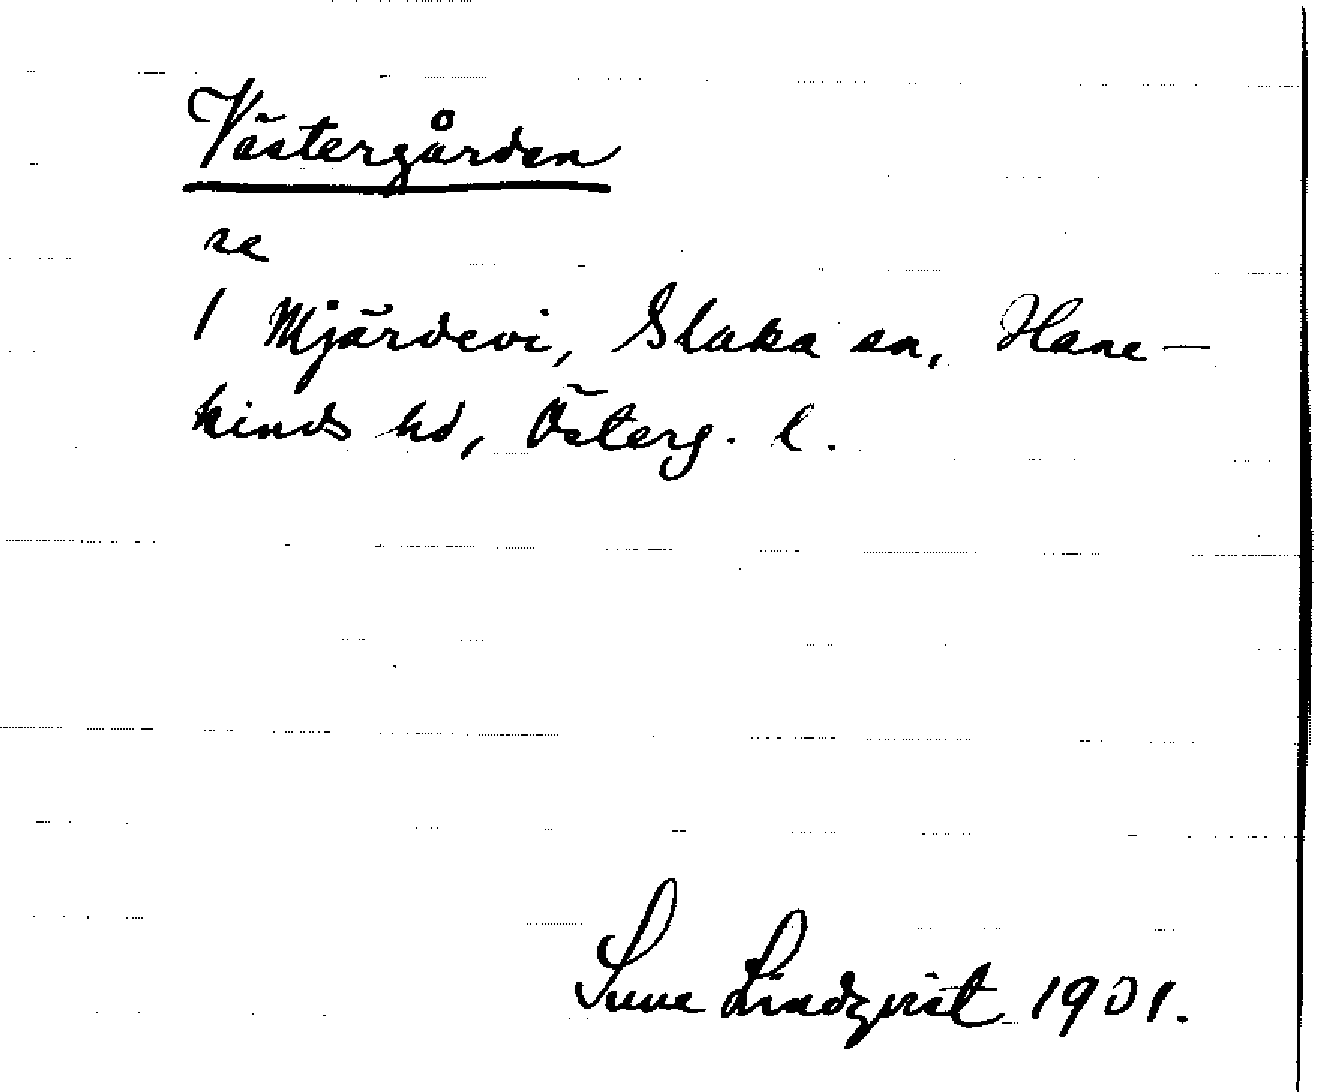 Västergården
se
1 Mjärdevi, Slaka sn, Hane-
kinds hd, Österg. l.
Sune Lindqvist 1901.